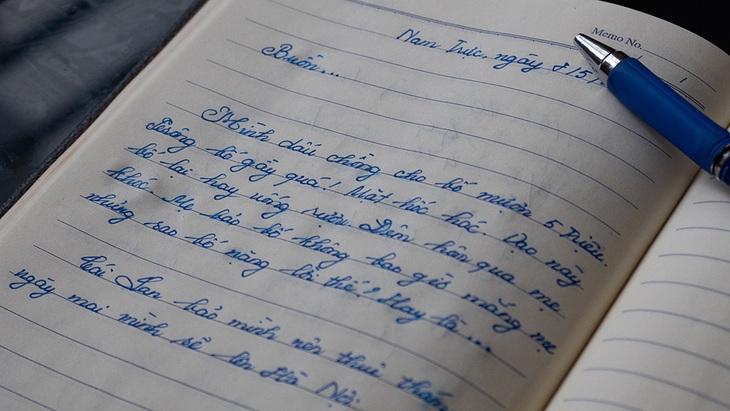 Memo No.
Nam Trực, ngày 8/5/
Buồn...
Mình dấu chồng cho bố mượn 5 triệu.
Trông bố gầy quá! Mặt hốc hác. Dạo này
bố lại hay uống rượu. Đêm hôm qua mẹ
khóc. Mẹ bảo bố không bao giờ mắng mẹ
nhưng sao bố nặng lời thế? Hay là...
Cái Lan bảo mình nên thuê thám
ngày mai mình sẽ lên Hà Nội.